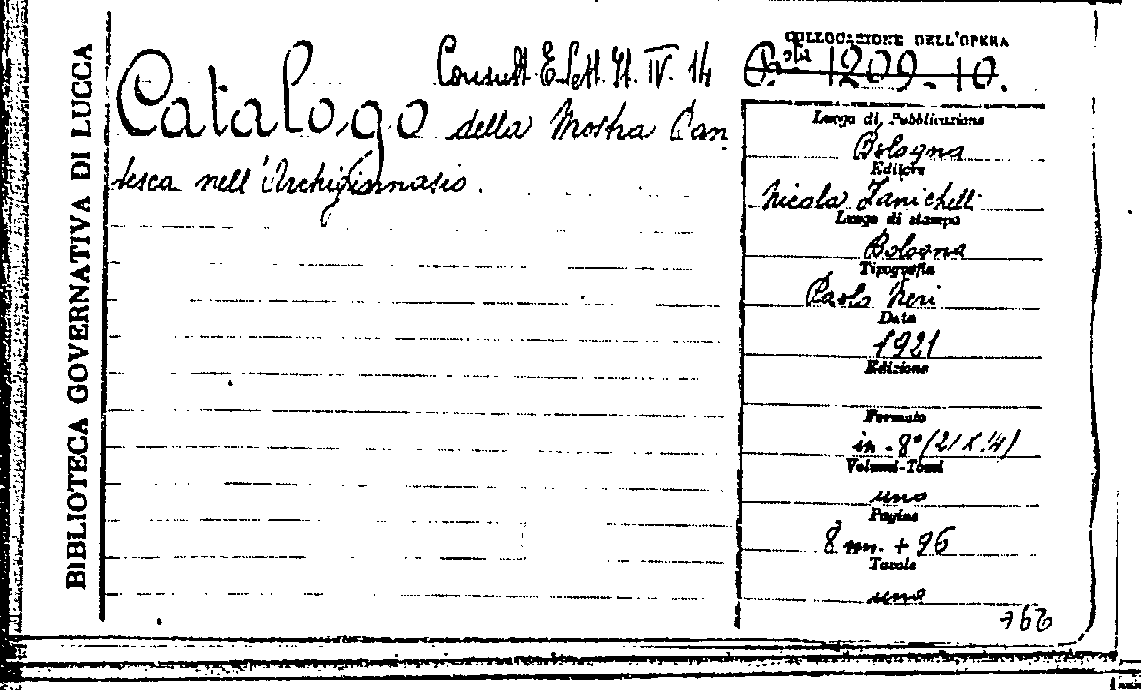 BIBLIOTECA GOVERNATIVA DI LUCCA
Consult. E. Lett. It. IV. 14
Catalogo della Mostra Dan
tesca nell'Archiginnasio.
COLLOCAZIONE DELL'OPERA
B.ta 1209.10.
Luogo di Pubblicazione
Bologna
Editore
Nicola Zanichelli
Luogo di stampa
Bologna
Tipografia
Paolo Neri
Data
1921
Edizione
Formato
in-8° (21 X 14)
Volumi-Tomi
uno
Pagine
8 nn. + 96
Tavole
una